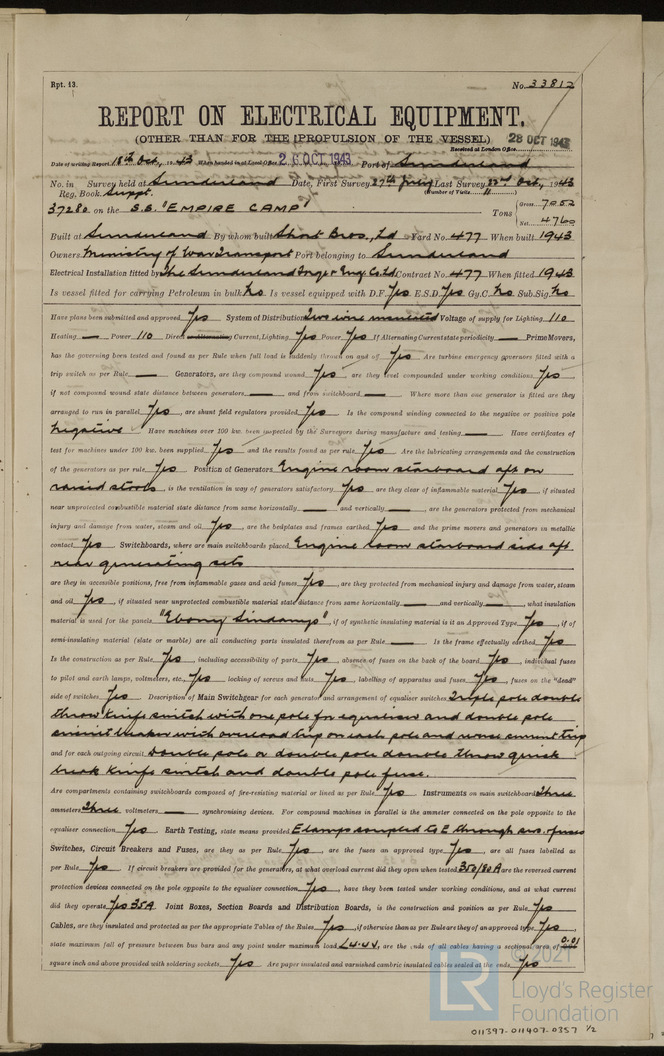 Rpt. 13.
No. 33812
REPORT ON ELECTRICAL EQUIPMENT.
(OTHER THAN FOR THE PROPULSION OF THE VESSEL)
28 OCT 1943
Received at London Office
Date of writing Report 18th Oct, 1943 When handed in at Local Office 26 OCT. 1943 Port of Sunderland
No. in Survey held at Sunderland Date, First Survey 27th July Last Survey Oct, 1943
Reg. Book. Suppt. (Number of Visits 11)
37280 on the S.S. "EMPIRE CAMP" Tons Gross 7052
Net 4760
Built at Sunderland By whom built Short Bros., Ld Yard No. 477 When built 1943
Owners Ministry of War Transport Port belonging to Sunderland
Electrical Installation fitted by The Sunderland Forge & Eng. Co. Ld. Contract No. 477 When fitted 1943
Is vessel fitted for carrying Petroleum in bulk No Is vessel equipped with D.F. Yes E.S.D. Yes Gy.C. No Sub.Sig. No
Have plans been submitted and approved Yes System of Distribution Two wire insulated Voltage of supply for Lighting 110
Heating — Power 110 Direct or Alternating Current, Lighting Yes Power Yes If Alternating Current state periodicity — Prime Movers,
has the governing been tested and found as per Rule when full load is suddenly thrown on and off Yes Are turbine emergency governors fitted with a
trip switch as per Rule — Generators, are they compound wound Yes, are they level compounded under working conditions Yes,
if not compound wound state distance between generators — and from switchboard — Where more than one generator is fitted are they
arranged to run in parallel Yes, are shunt field regulators provided Yes Is the compound winding connected to the negative or positive pole
Negative Have machines over 100 kw. been inspected by the Surveyors during manufacture and testing — Have certificates of
test for machines under 100 kw. been supplied Yes and the results found as per rule Yes Are the lubricating arrangements and the construction
of the generators as per rule Yes Position of Generators Engine room starboard aft on
raised stools, is the ventilation in way of generators satisfactory Yes are they clear of inflammable material Yes, if situated
near unprotected combustible material state distance from same horizontally — and vertically —, are the generators protected from mechanical
injury and damage from water, steam and oil Yes, are the bedplates and frames earthed Yes and the prime movers and generators in metallic
contact Yes Switchboards, where are main switchboards placed Engine room starboard side aft
near generating sets
are they in accessible positions, free from inflammable gases and acid fumes Yes, are they protected from mechanical injury and damage from water, steam
and oil Yes, if situated near unprotected combustible material state distance from same horizontally — and vertically —, what insulation
material is used for the panels "Ebony Sindanyo", if of synthetic insulating material is it an Approved Type Yes, if of
semi-insulating material (slate or marble) are all conducting parts insulated therefrom as per Rule — Is the frame effectually earthed Yes
Is the construction as per Rule Yes, including accessibility of parts Yes, absence of fuses on the back of the board Yes, individual fuses
to pilot and earth lamps, voltmeters, etc., Yes locking of screws and nuts Yes, labelling of apparatus and fuses Yes, fuses on the "dead"
side of switches Yes Description of Main Switchgear for each generator and arrangement of equaliser switches Triple pole double
throw knife switch with one pole for equaliser and double pole
circuit breaker with overload trip on each pole and reverse current trip
and for each outgoing circuit Double pole or double pole double throw quick
break knife switch and double pole fuse.
Are compartments containing switchboards composed of fire-resisting material or lined as per Rule Yes Instruments on main switchboard Three
ammeters Three voltmeters — synchronising devices. For compound machines in parallel is the ammeter connected on the pole opposite to the
equaliser connection Yes Earth Testing, state means provided E lamps coupled to E through sws. & fuses
Switches, Circuit Breakers and Fuses, are they as per Rule Yes, are the fuses an approved type Yes, are all fuses labelled as
per Rule Yes If circuit breakers are provided for the generators, at what overload current did they open when tested 350/80A are the reversed current
protection devices connected on the pole opposite to the equaliser connection Yes, have they been tested under working conditions, and at what current
did they operate Yes 35A Joint Boxes, Section Boards and Distribution Boards, is the construction and position as per Rule Yes
Cables, are they insulated and protected as per the appropriate Tables of the Rules Yes, if otherwise than as per Rule are they of an approved type Yes,
state maximum fall of pressure between bus bars and any point under maximum load L4.4V, are the ends of all cables having a sectional area of 0.01
square inch and above provided with soldering sockets Yes Are paper insulated and varnished cambric insulated cables sealed at the ends Yes
© 2021
LR
Lloyd's Register
Foundation
011397-011407-0357 1/2